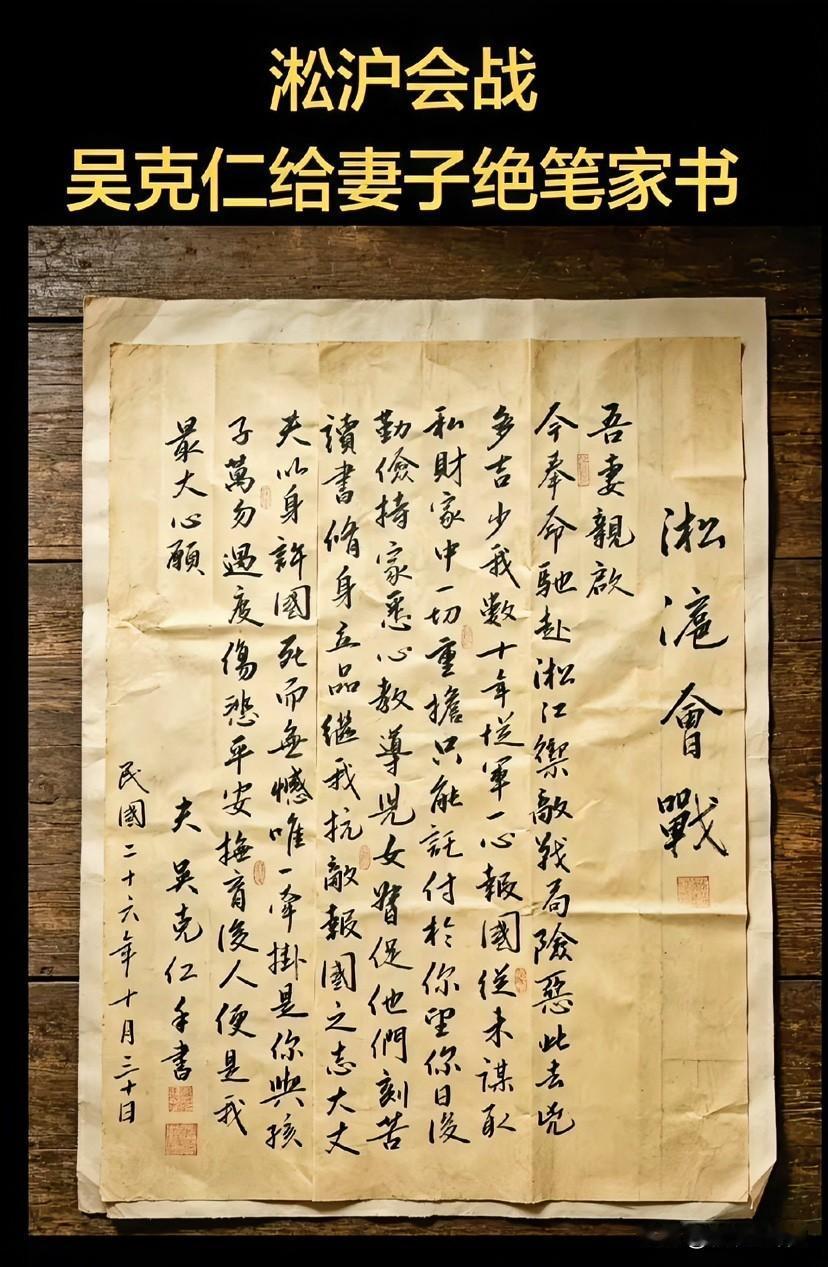 淞沪会战
吴克仁给妻子绝笔家书
淞滬會戰
吾妻親啟
今奉命馳赴淞江禦敵戰局險惡此去凶
多吉少我數十年從軍一心報國從未謀取
私財家中一切重擔只能託付於你望你日後
勤儉持家悉心教導兒女督促他們刻苦
讀書修身立品繼我抗敵報國之志大丈
夫以身許國死而無憾唯一牽掛是你與孩
子萬勿過度傷悲平安撫育後人便是我
最大心願
夫吴克仁手書
民國二十六年十月三十日